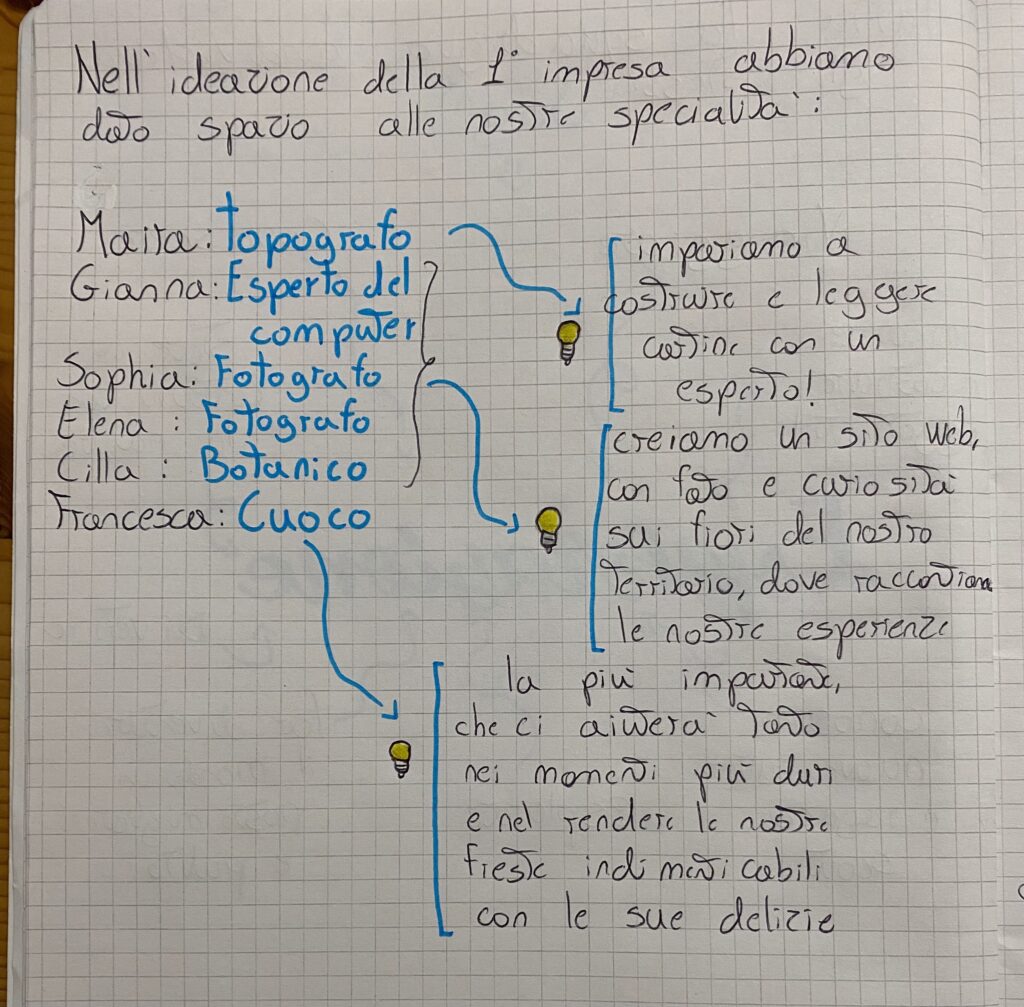 Nell'ideazione della 1° impresa abbiamo
dato spazio alle nostre specialità:
Maira: Topografo
Gianna: Esperto del
computer
Sophia: Fotografo
Elena: Fotografo
Cilla: Botanico
Francesca: Cuoco
impariamo a
costruire e leggere
cartine con un
esperto!
creiamo un sito web,
con foto e curiosità
sui fiori del nostro
territorio, dove raccontiamo
le nostre esperienze
la più importante,
che ci aiuterà tanto
nei momenti più duri
e nel rendere le nostre
fieste indimenticabili
con le sue delizie